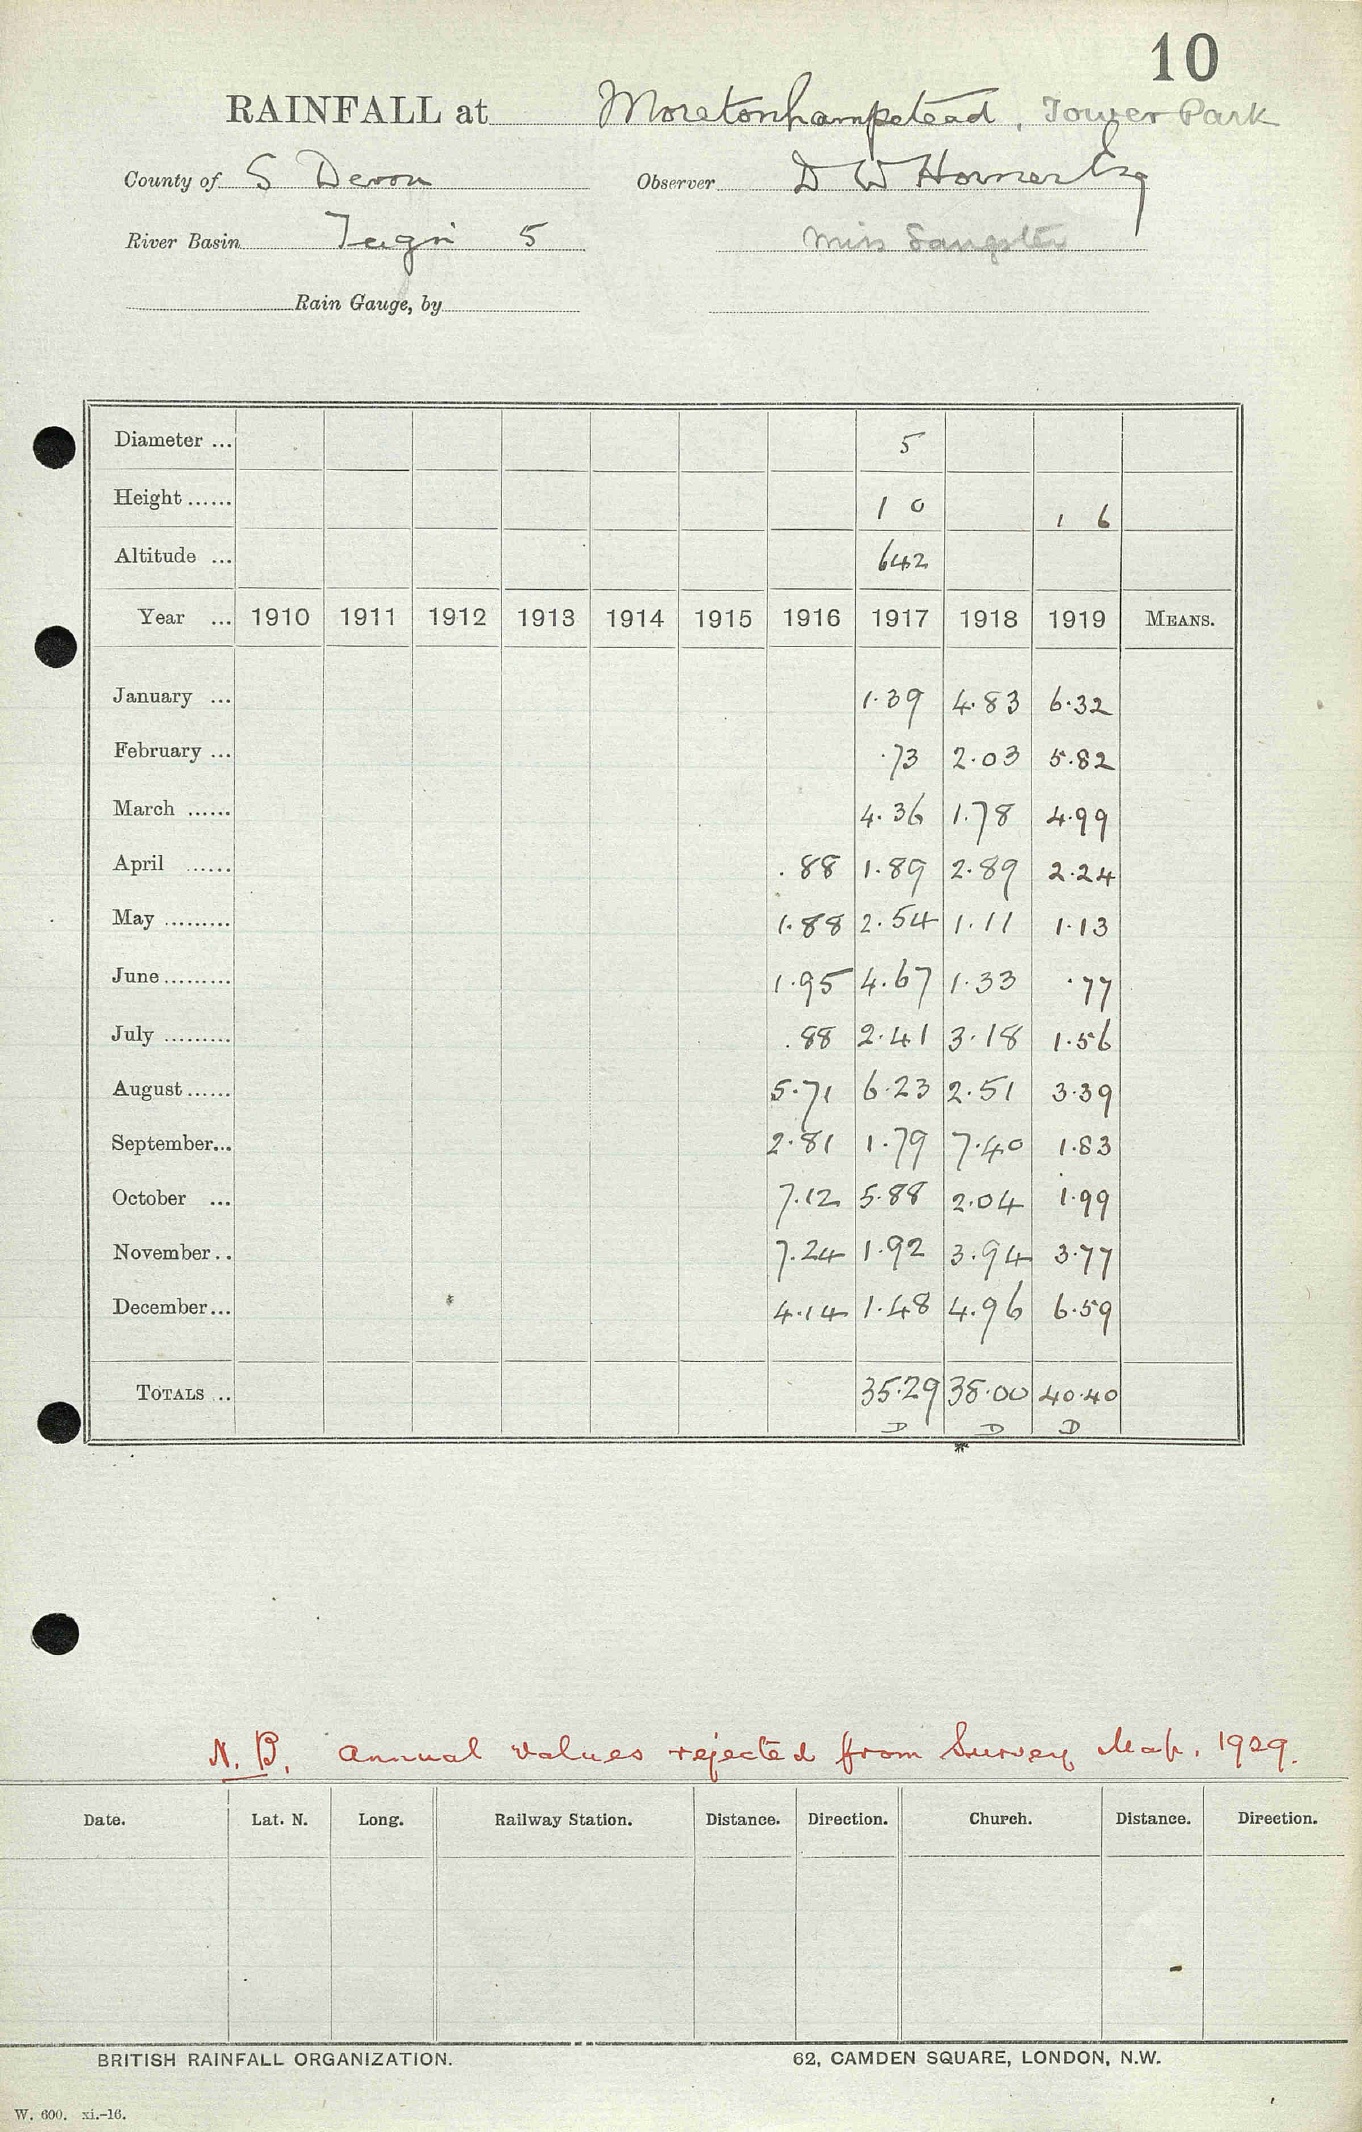 10
RAINFALL at Moretonhampstead, Tower Park
County of S Devon Observer D W Horner Esq
River Basin Teign 5 Miss Sangster
Rain Gauge, by
Diameter ... 5
Height ...... 1 0 1 6
Altitude ... 642
Year ... 1910 1911 1912 1913 1914 1915 1916 1917 1918 1919 MEANS.
January ... 1.39 4.83 6.32
February ... .73 2.03 5.82
March ...... 4.36 1.78 4.99
April ...... .88 1.89 2.89 2.24
May ......... 1.88 2.54 1.11 1.13
June ......... 1.95 4.67 1.33 .77
July ......... .88 2.41 3.18 1.56
August ...... 5.71 6.23 2.51 3.39
September... 2.81 1.79 7.40 1.83
October ... 7.12 5.88 2.04 1.99
November .. 7.24 1.92 3.94 3.77
December... 4.14 1.48 4.96 6.59
TOTALS ... 35.29 38.00 40.40
D D D
*
N.B. Annual values rejected from Survey Map. 1929.
Date. Lat. N. Long. Railway Station. Distance. Direction. Church. Distance. Direction.
BRITISH RAINFALL ORGANIZATION. 62, CAMDEN SQUARE, LONDON, N.W.
W. 600. xi.-16.